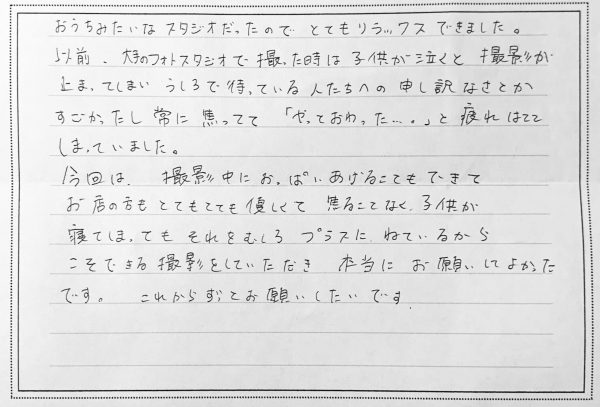 おうちみたいなスタジオだったので とてもリラックスできました。
以前、大手のフォトスタジオで撮った時は子供が泣くと 撮影が
止まってしまい うしろで待っている人たちへの申し訳なさとか
すごかったし 常に焦ってて 「やっておわった…。」と疲れはてて
しまっていました。
今回は、撮影中におっぱいあげることもできて
お店の方もとてもとても優しくて 焦ることなく、子供が
寝てしまっても それをむしろ プラスに、ねているから
こそできる撮影をしていただき 本当にお願いしてよかった
です。 これからずっとお願いしたいです